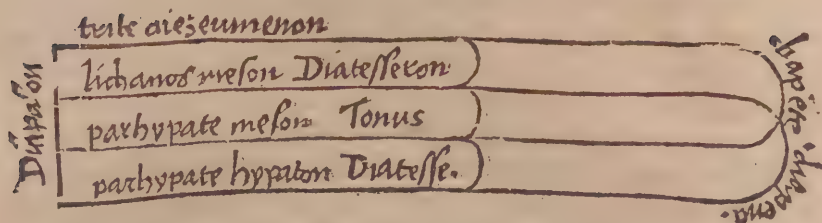 trite diezeumenon
lichanos meson Diatesseron
parhypate meson Tonus
parhypate hypaton Diatesse.
Diapason
diapente diapente